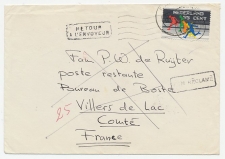 RETOUR
A L'ENVOYEUR
NEDERLAND
CENT
Fam P.W. de Ruyter
poste restante
Bureau de Poste
NON RÉCLAMÉ
25
Villers de Lac
Comté
France